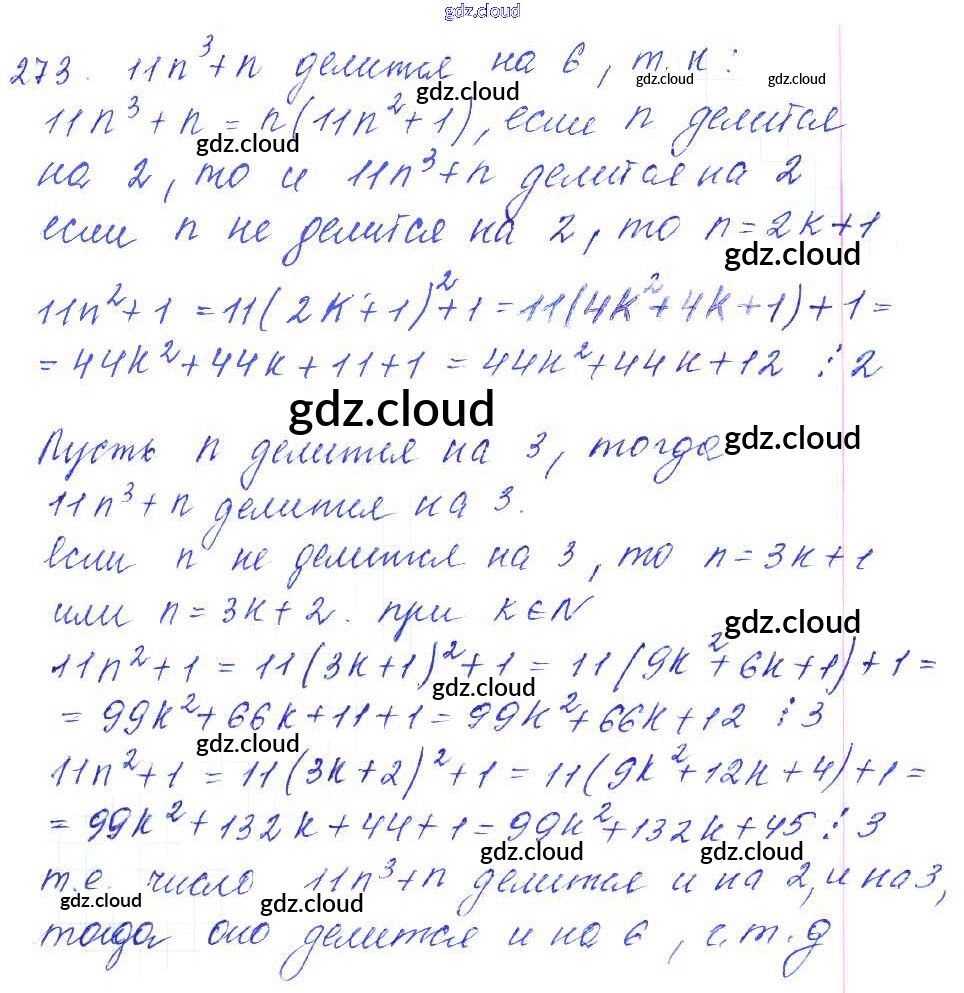 gdz.cloud
273. 11n³+n делится на 6, т.к:
gdz.cloud gdz.cloud gdz.cloud
11n³+n = n(11n²+1), если n делится
gdz.cloud
на 2, то и 11n³+n делится на 2
если n не делится на 2, то n=2k+1
gdz.cloud
11n²+1 = 11(2k+1)²+1 = 11(4k²+4k+1)+1=
= 44k²+44k+11+1 = 44k²+44k+12 ⋮ 2
gdz.cloud gdz.cloud
Пусть n делится на 3, тогда
11n³+n делится на 3.
если n не делится на 3, то n=3k+1
или n=3k+2. при k∈N
gdz.cloud
11n²+1 = 11(3k+1)²+1 = 11(9k²+6k+1)+1=
gdz.cloud
= 99k²+66k+11+1= 99k²+66k+12 ⋮ 3
gdz.cloud
11n²+1 = 11(3k+2)²+1 = 11(9k²+12k+4)+1=
= 99k²+132k+44+1= 99k²+132k+45 ⋮ 3
gdz.cloud gdz.cloud
т.е. число 11n³+n делится и на 2, и на 3,
gdz.cloud gdz.cloud
тогда оно делится и на 6, ч.т.д